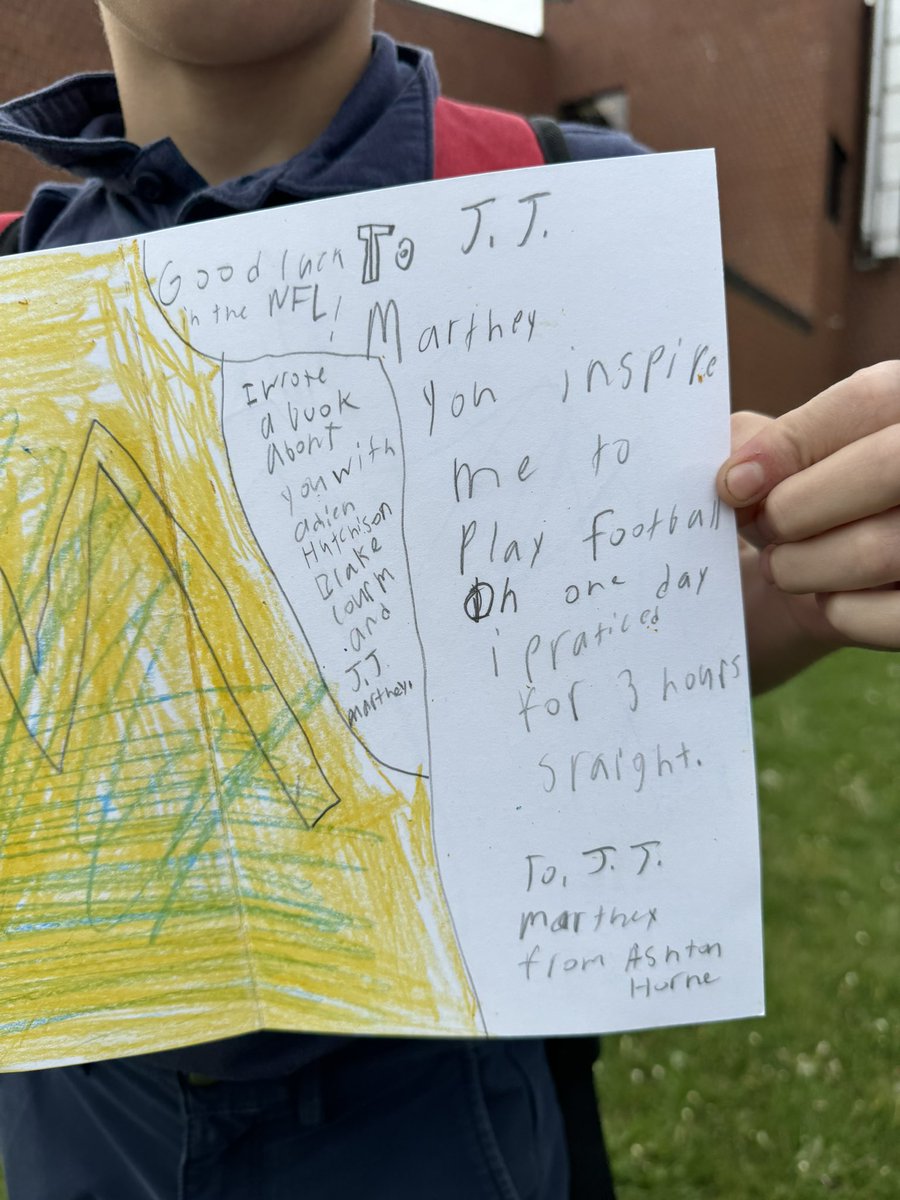 Good luck
in the NFL!
To J.J.
Marthey
you inspire
me to
Play football
Oh one day
i praticed
for 3 hours
sraight.
To, J.J.
marthey
from Ashton
Horne
I wrote
a book
about
you with
adien
Hutchison
Blake
Courm
and
J.J.
marthey.